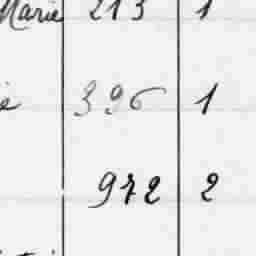 Marie 213 1
396 1
972 2